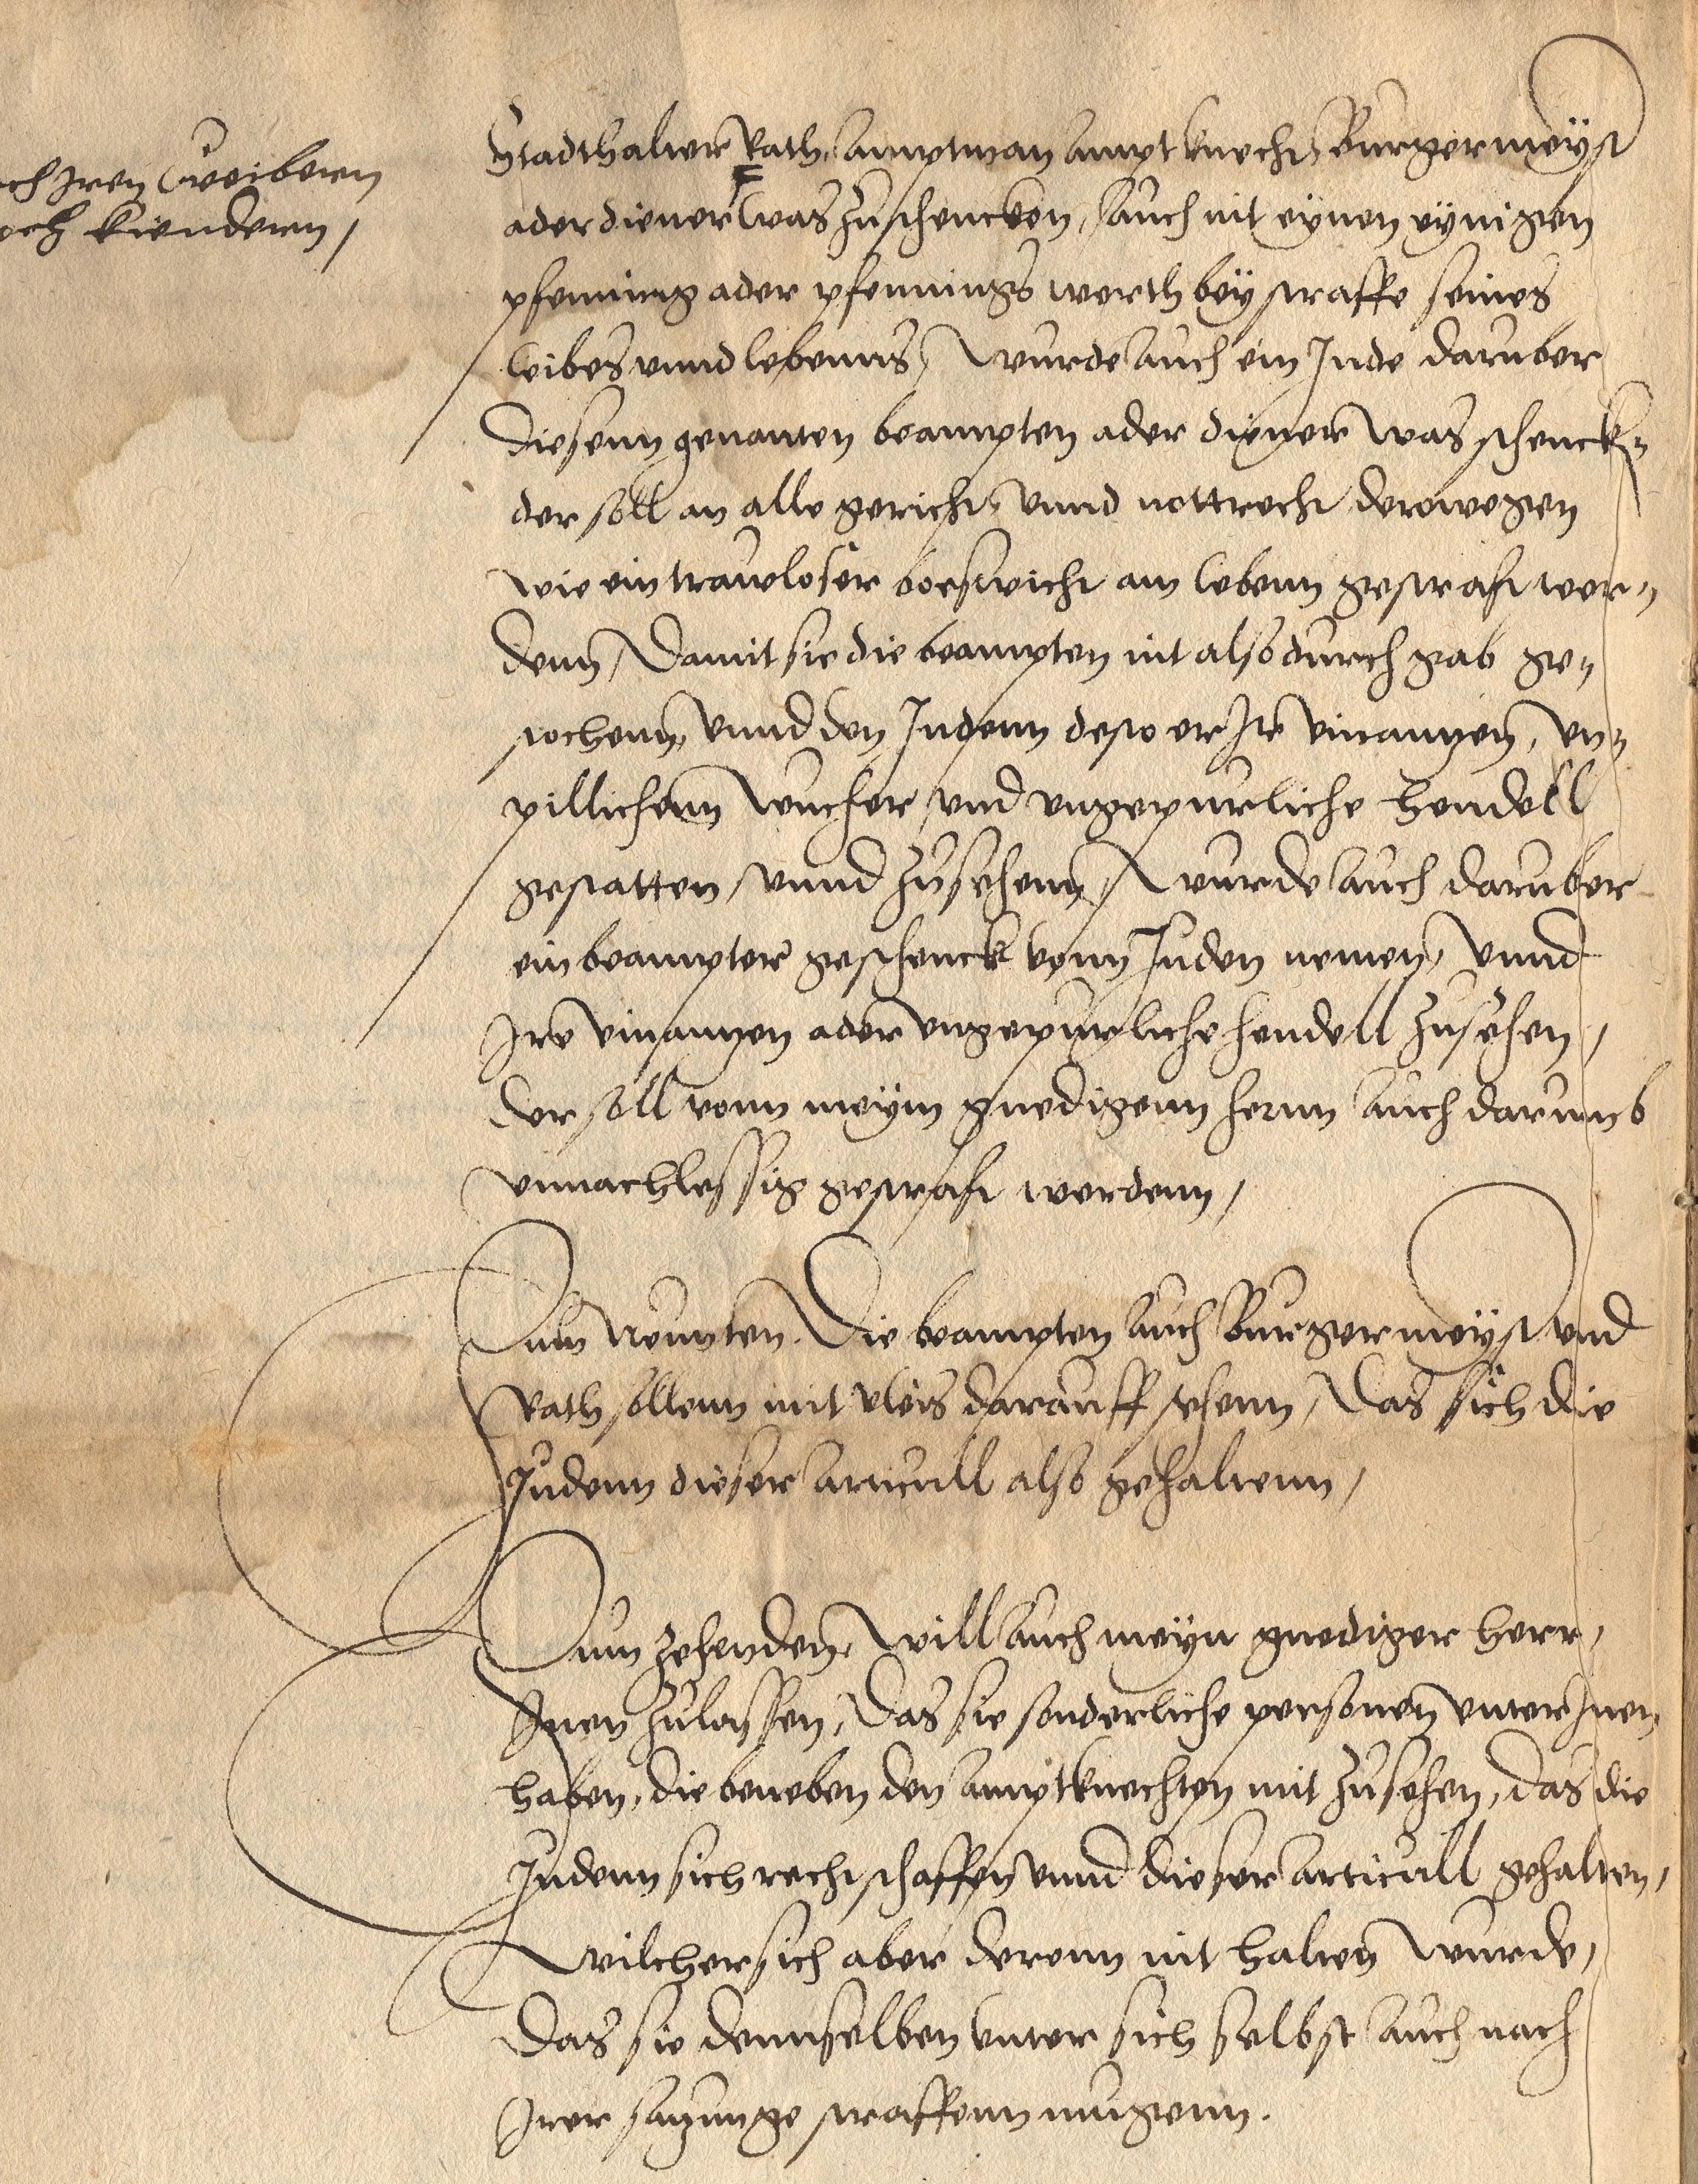 och Iren weibern
noch kiendern,
Stadthalter Rath, amptman amptknecht, Burgermeyst
ader diener was zuschencken, auch nit eynen eynigen
pfenning ader pfennings werth bey straffe seines
leibes unnd lebenns, Wurde auch ein Jude daruber
diesenn genanten beampten ader diener was schenck=
der soll an alle gericht, unnd nottrecht derowegen
wie ein trauwloser boeswicht am lebenn gestraft wer=
denn, Damit sie die beampten nit also durch gab ge=
stochenn, unnd den Judenn desto er Ire vinantzen, un=
pillichenn wucher, und ungepurliche hendell
gestatten, unnd zusehenn, Wurde auch daruber
ein beampter geschenck vonn Juden nemen, unnd
Ire vinantzen ader ungepurliche hendell zusehen,
der soll vonn meym gnedigenn hernn auch darumb
unnachlessig gestraft werdenn,
Zum Neunten. Die beampten auch Burgermeyst und
Rath sollenn mit vleis darauff sehenn, das sich die
Judenn dieser articull also gehaltenn,
Zum zehenden, Will auch meyn gnediger herr,
Inen zulassen, das sie sonderliche personen unter Inen
haben, die beneben den amptknechten mit zusehen, das die
Judenn sich rechtschaffen unnd dieser articull gehalten,
Wilcher sich aber derenn nit halten wurde,
Das sie dennselben unter sich selbst auch nach
Irer satzunge straffenn mugenn.